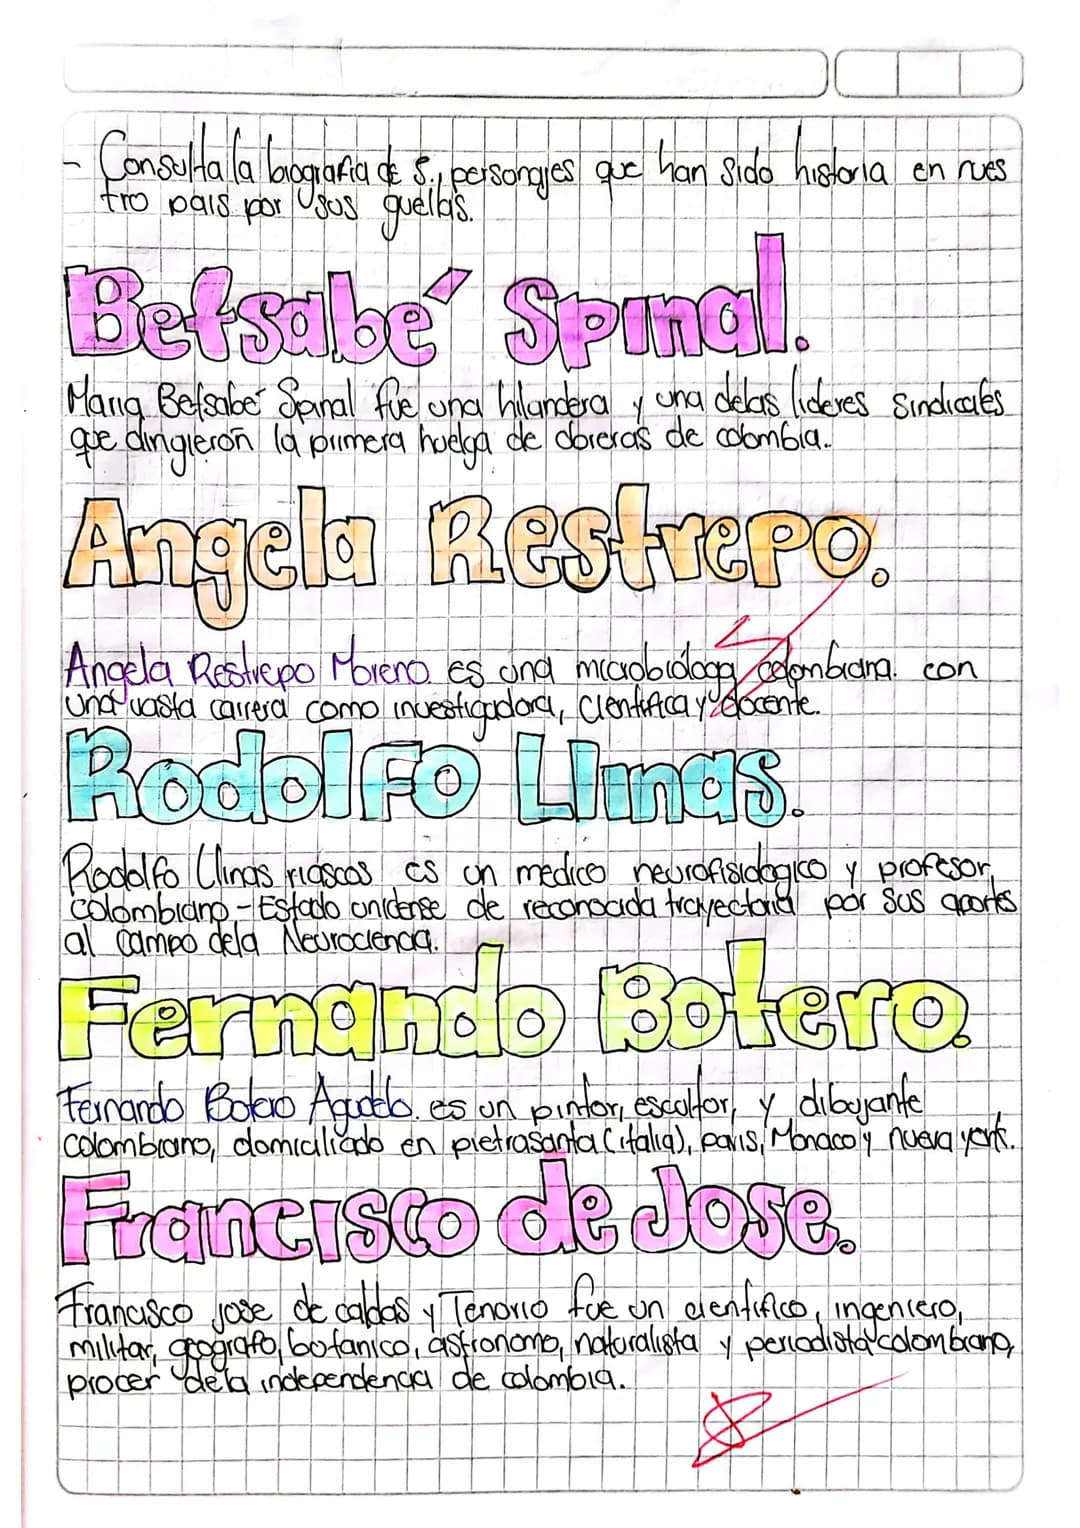 - Consulta la biografia de 5., personajes que han sido historia en nues
tro pais por sus guellas.
Betsabé Spinal.
Maria Betsabé Spinal fue una hilandera y una delas lideres sindicales
que dirigieron la primera huelga de obreras de colombia..
Angela Restrepo.
Angela Restrepo Moreno es una microbióloga colombiana. con
una vasta carrera como investigadora, cientifica y docente.
Rodolfo Llinas.
Rodolfo Llinas riascos es un medico neurofisiologico y profesor
colombiano-Estado unidense de reconocida trayectoria por sus aportes
al campo dela Neurociencia.
Fernando Botero.
Fernando Botero Agudelo. es un pintor, escultor, y dibujante
colombiano, domiciliado en pietrasanta (italia), paris, Monaco y nueva york.
Francisco de Jose.
Francisco jose de caldas y Tenorio fue un cientifico, ingeniero,
militar, geografo, botanico, astronomo, naturalista y periodista colombiano,
procer dela independencia de colombia.